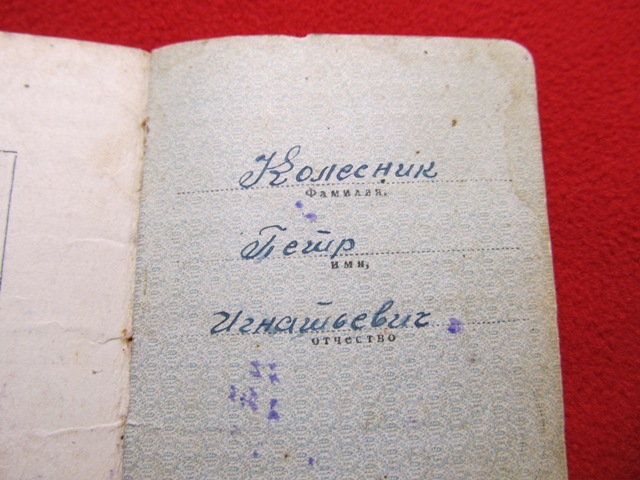 Колесник
Фамилия,
Петр
имя,
Игнатьевич
отчество